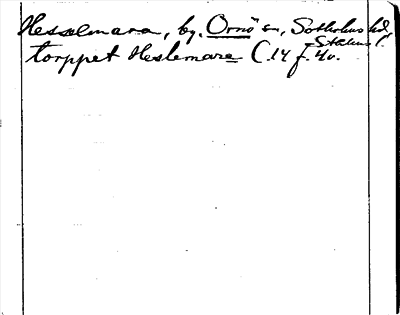 Hesselmara, by, Ornö sn, Sotholms hd,
Sthlms l.
torppet Heslemare C 14 f. 40.